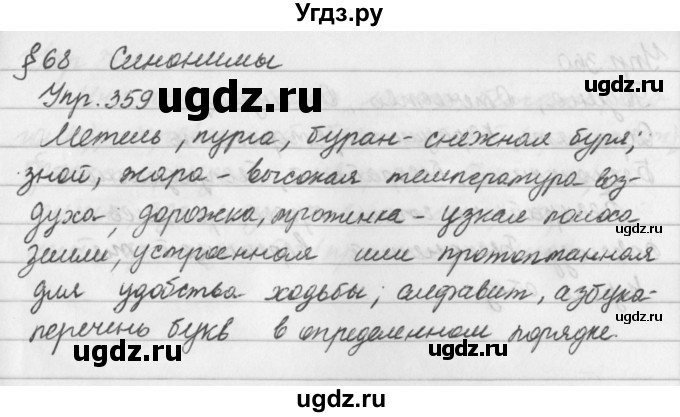 Угдз.ру
§68 Синонимы
Упр. 359
ugdz.ru
Метель, пурга, буран - снежная буря;
зной, жара - высокая температура воз-
духа, дорожка, тропинка - узкая полоса
ugdz.ru
ugdz.ru
земли, устроенная или протоптанная
для удобства ходьбы; алфавит, азбука-
перечень букв в определенном порядке.
ugdz.ru
ugdz.ru
ugdz.ru